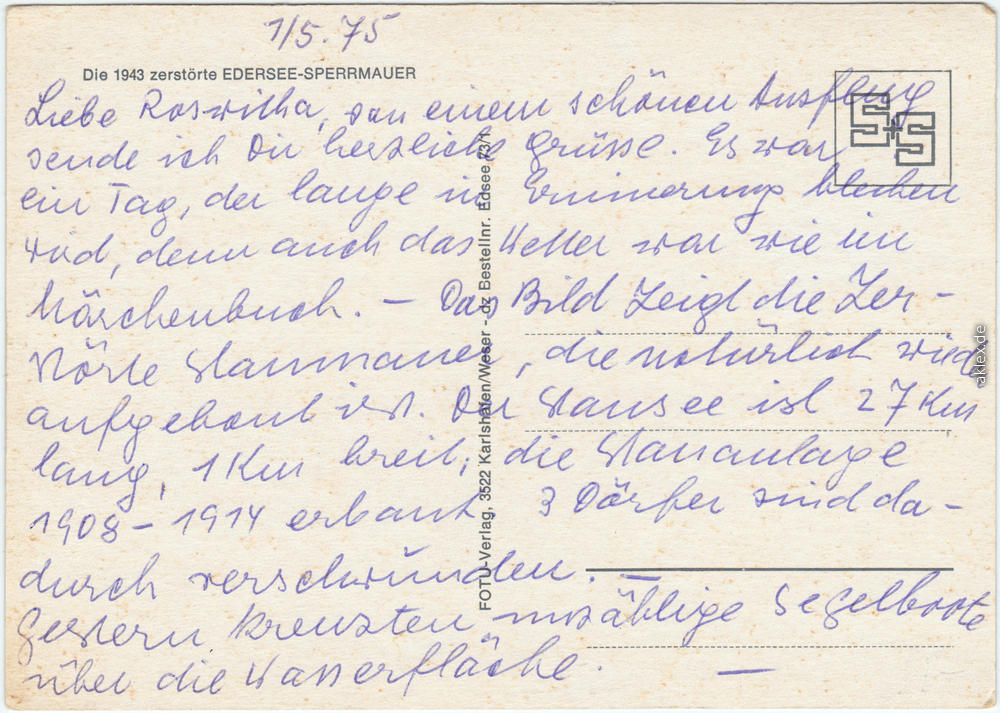 1/5. 75
Die 1943 zerstörte EDERSEE-SPERRMAUER
Liebe Roswitha, von einem schönen Ausflug
sende ich Dir herzliche Grüsse. Es war
ein Tag, der lange in Erinnerung bleiben
wird, denn auch das Wetter war wie im
Märchenbuch. – Das Bild zeigt die zer-
störte Staumauer, die natürlich wieder
aufgebaut ist. Der Stausee ist 27 Km
lang, 1 Km breit, die Stauanlage
1908 – 1914 erbaut, 3 Dörfer sind da-
durch verschwunden. –
Gestern kreuzten unzählige Segelboote
über die Wasserfläche. –
S+S
FOTU-Verlag, 3522 Karlshafen/Weser - dz Bestellnr. Edsee 73/1
aklex.de